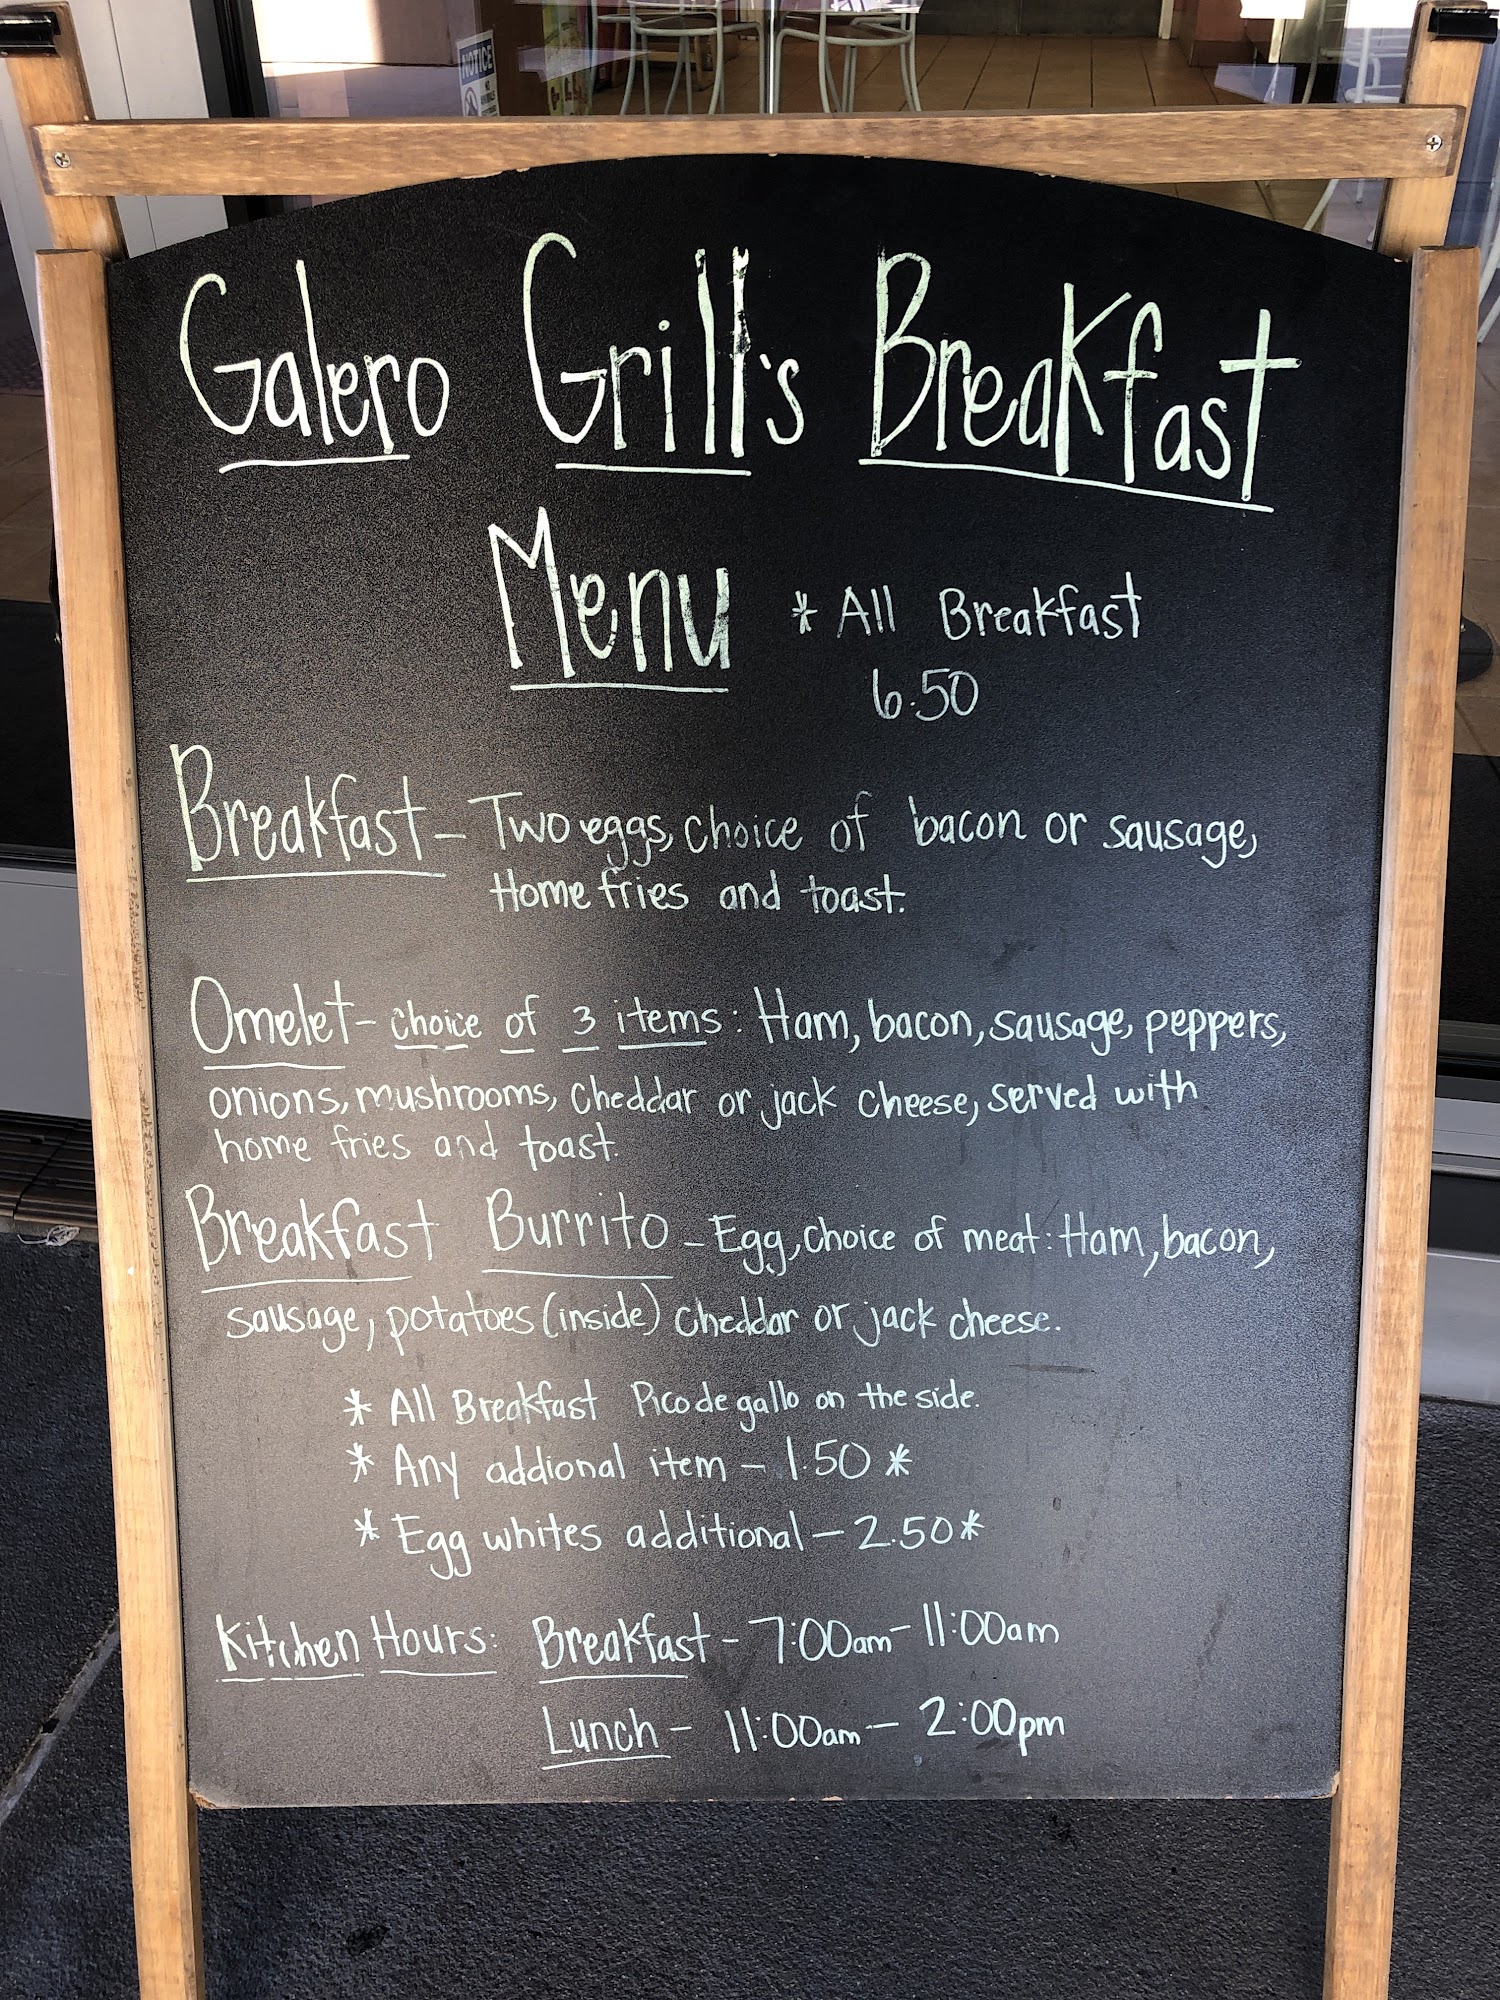 NOTICE
Galero Grill's Breakfast
Menu * All Breakfast
6.50
Breakfast - Two eggs, choice of bacon or sausage,
Home fries and toast.
Omelet - choice of 3 items: Ham, bacon, sausage, peppers,
onions, mushrooms, cheddar or jack cheese, served with
home fries and toast.
Breakfast Burrito - Egg, choice of meat: Ham, bacon,
sausage, potatoes (inside) cheddar or jack cheese.
* All Breakfast Pico de gallo on the side.
* Any addional item - 1.50 *
* Egg whites additional - 2.50 *
Kitchen Hours: Breakfast - 7:00am - 11:00am
Lunch - 11:00am - 2:00pm